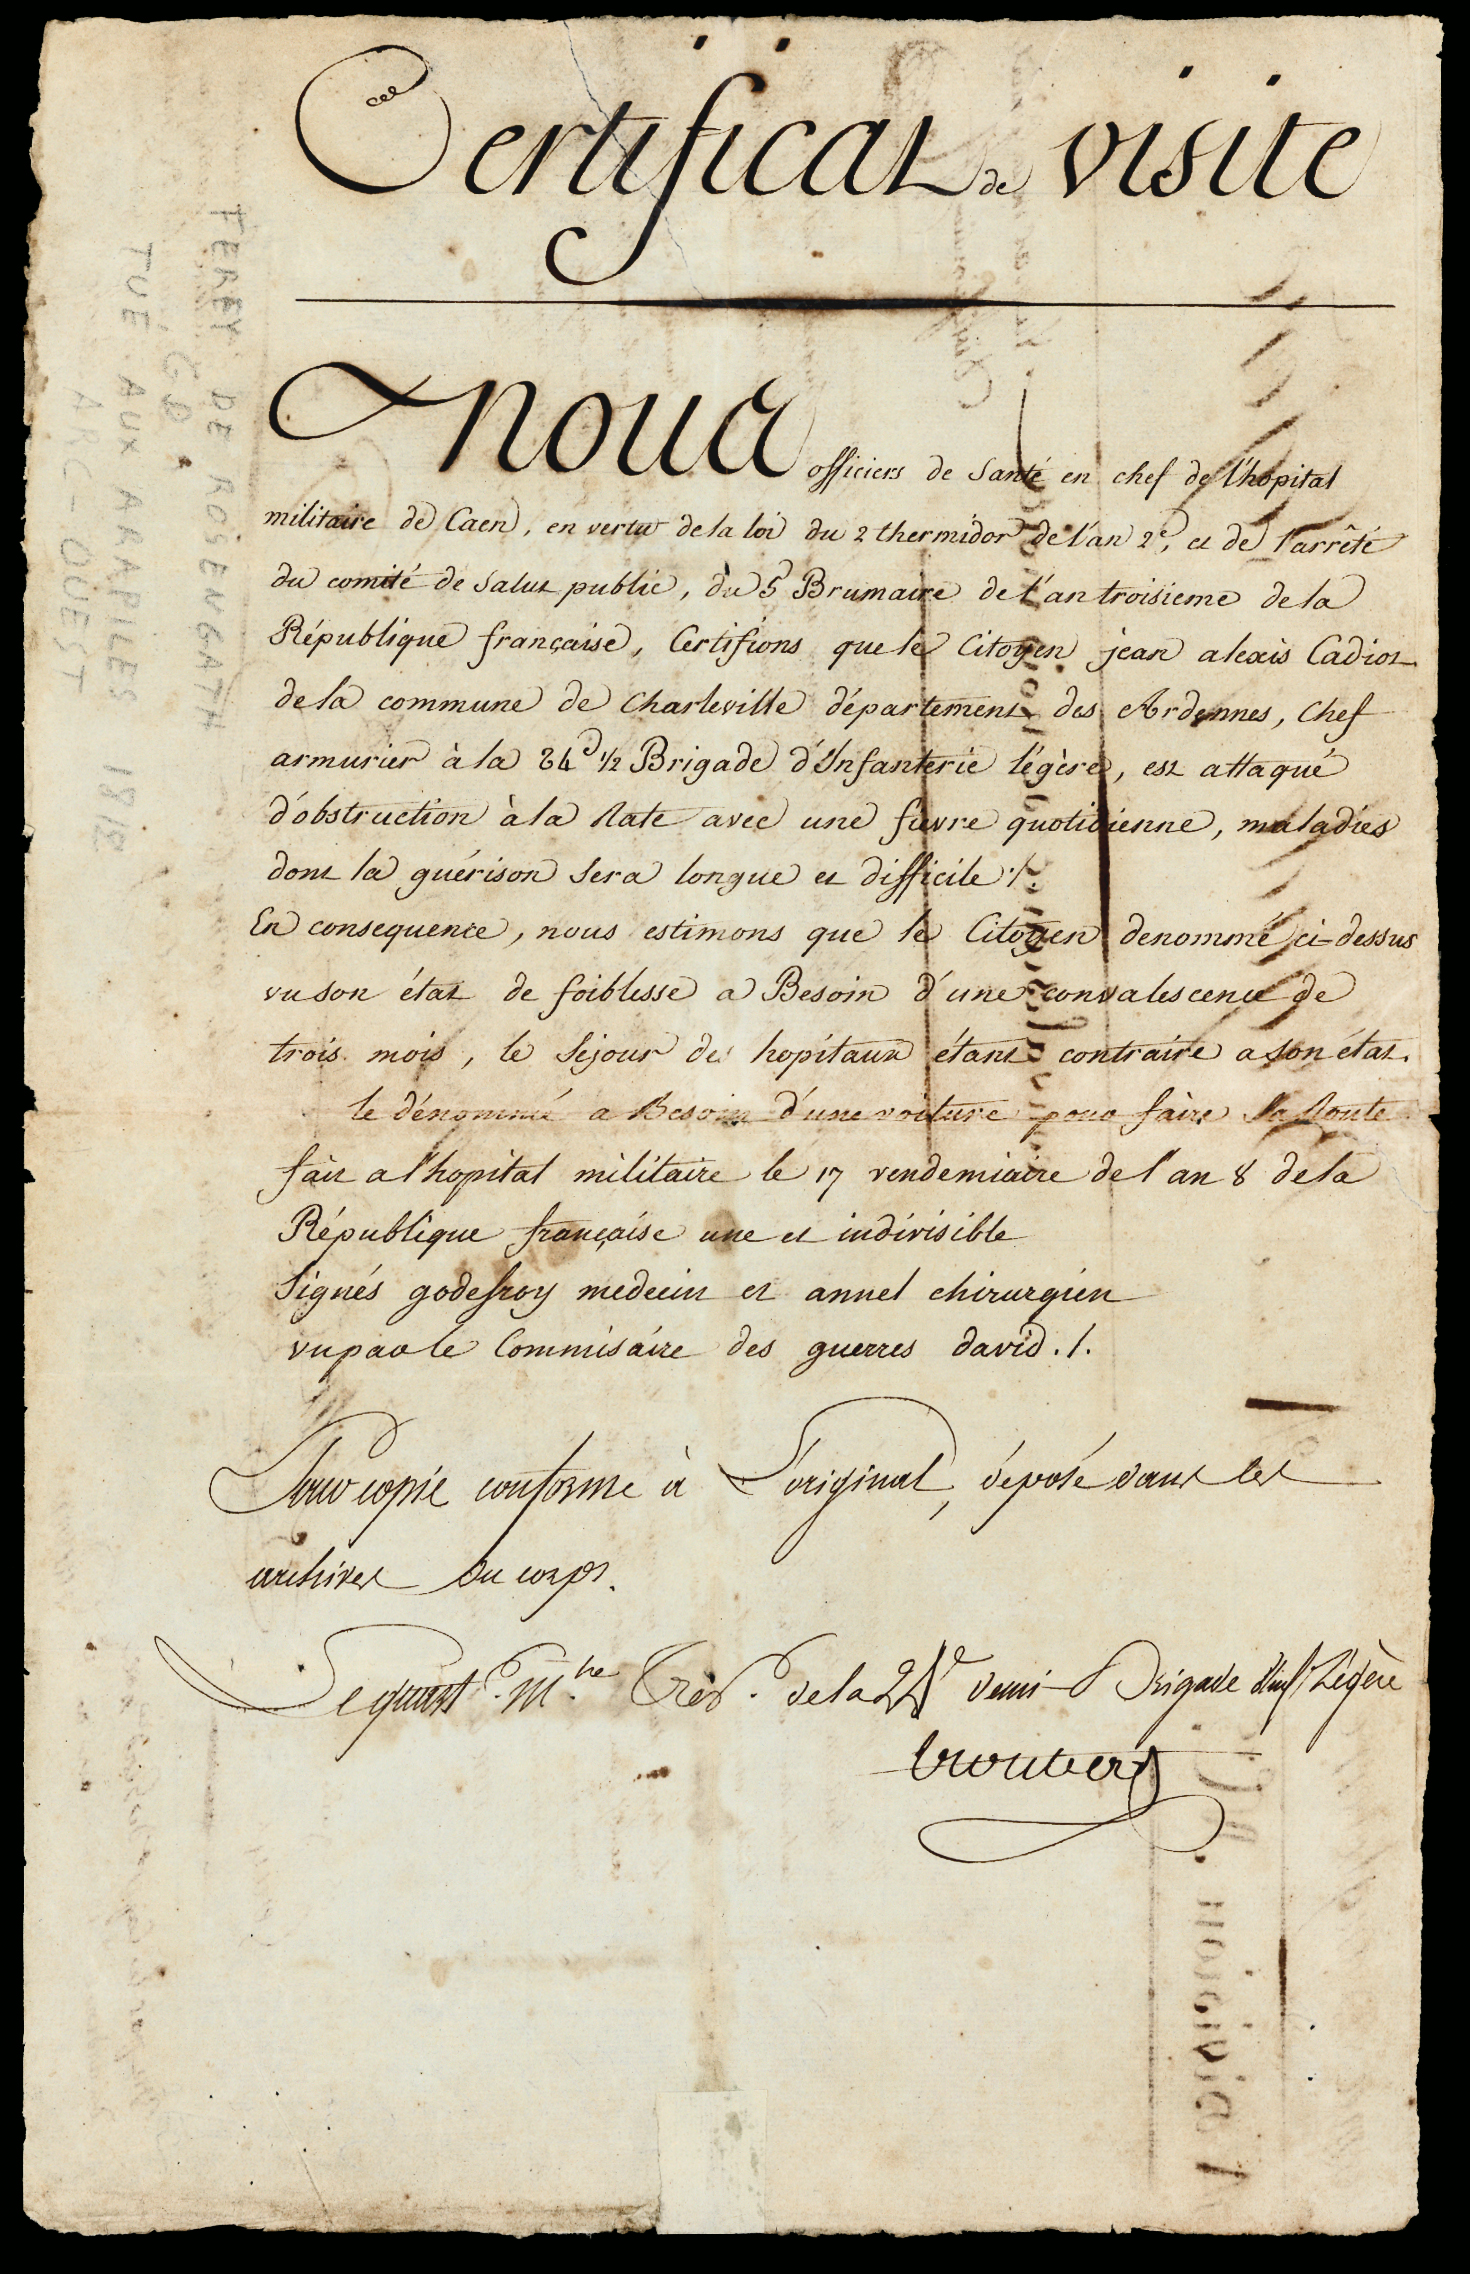 Certificat de visite
Nous officiers de Santé en chef de l'hopital
militaire de Caen, en vertu de la loi du 2 thermidor de l'an 2e, et de l'arrêté
du comité de Salut public, du 5 Brumaire de l'an troisieme de la
République française, Certifions que le Citoyen jean alexis Cadiot
de la commune de Charleville département des Ardennes, Chef
armurier à la 24e 1/2 Brigade d'Infanterie légère, est attaqué
d'obstruction à la Rate avec une fievre quotidienne, maladies
dont la guérison Sera longue et difficile ./.
En consequence, nous estimons que le Citoyen denommé ci-dessus
vu son état de foiblesse a Besoin d'une convalescence de
trois mois, le Sejour des hopitaux étant contraire a son état.
le dénommé a Besoin d'une voiture pour faire Sa Route
fait a l'hopital militaire le 17 vendemiaire de l'an 8 de la
République française une et indivisible
Signés godefroy medecin et annel chirurgien
vu par le Commisaire des guerres david ./.
Pour copie conforme à L'original, déposé dans les
archives du corps.
Le quart. r M.tre Trés. r de la 24e demi-Brigade d'inf. Légère
FEREY DE ROSENGATH
GD
TUÉ AUX ARAPILES 1812
ARC-OUEST